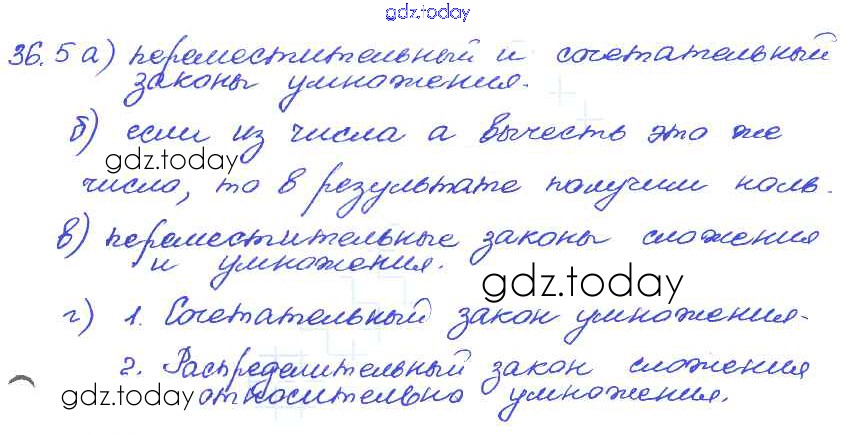 gdz.today
36.5 а) переместительный и сочетательный
законы умножения.
б) если из числа а вычесть это же
gdz.today
число, то в результате получим ноль.
в) переместительные законы сложения
и умножения.
gdz.today
г) 1. Сочетательный закон умножения.
2. Распределительный закон сложения
gdz.today
относительно умножения.